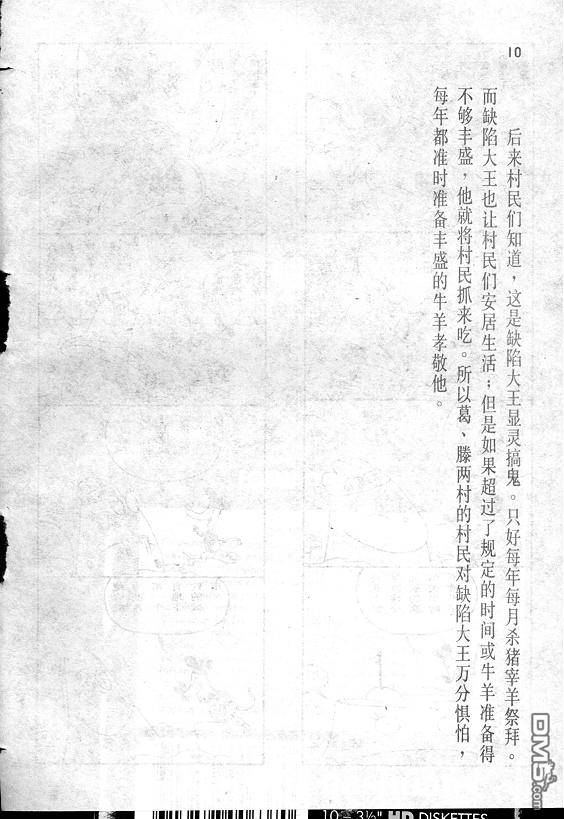 10
后来村民们知道，这是缺陷大王显灵搞鬼。只好每年每月杀猪宰羊祭拜。
而缺陷大王也让村民们安居生活；但是如果超过了规定的时间或牛羊准备得
不够丰盛，他就将村民抓来吃。所以葛、滕两村的村民对缺陷大王万分惧怕，
每年都准时准备丰盛的牛羊孝敬他。
DM5.com
10 – 3½" HD DISKETTES